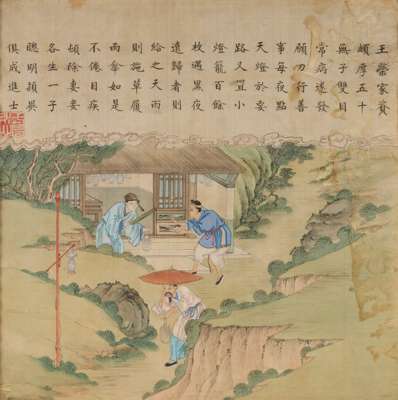 王榮家貲
頗厚五十
無子雙目
常病遂發
願力行善
事每夜點
天燈於要
路又置小
燈籠百餘
枚遇黑夜
遠歸者則
給之天雨
則施草履
雨傘如是
不倦目疾
頓除妻妾
各生一子
聰明穎異
俱成進士